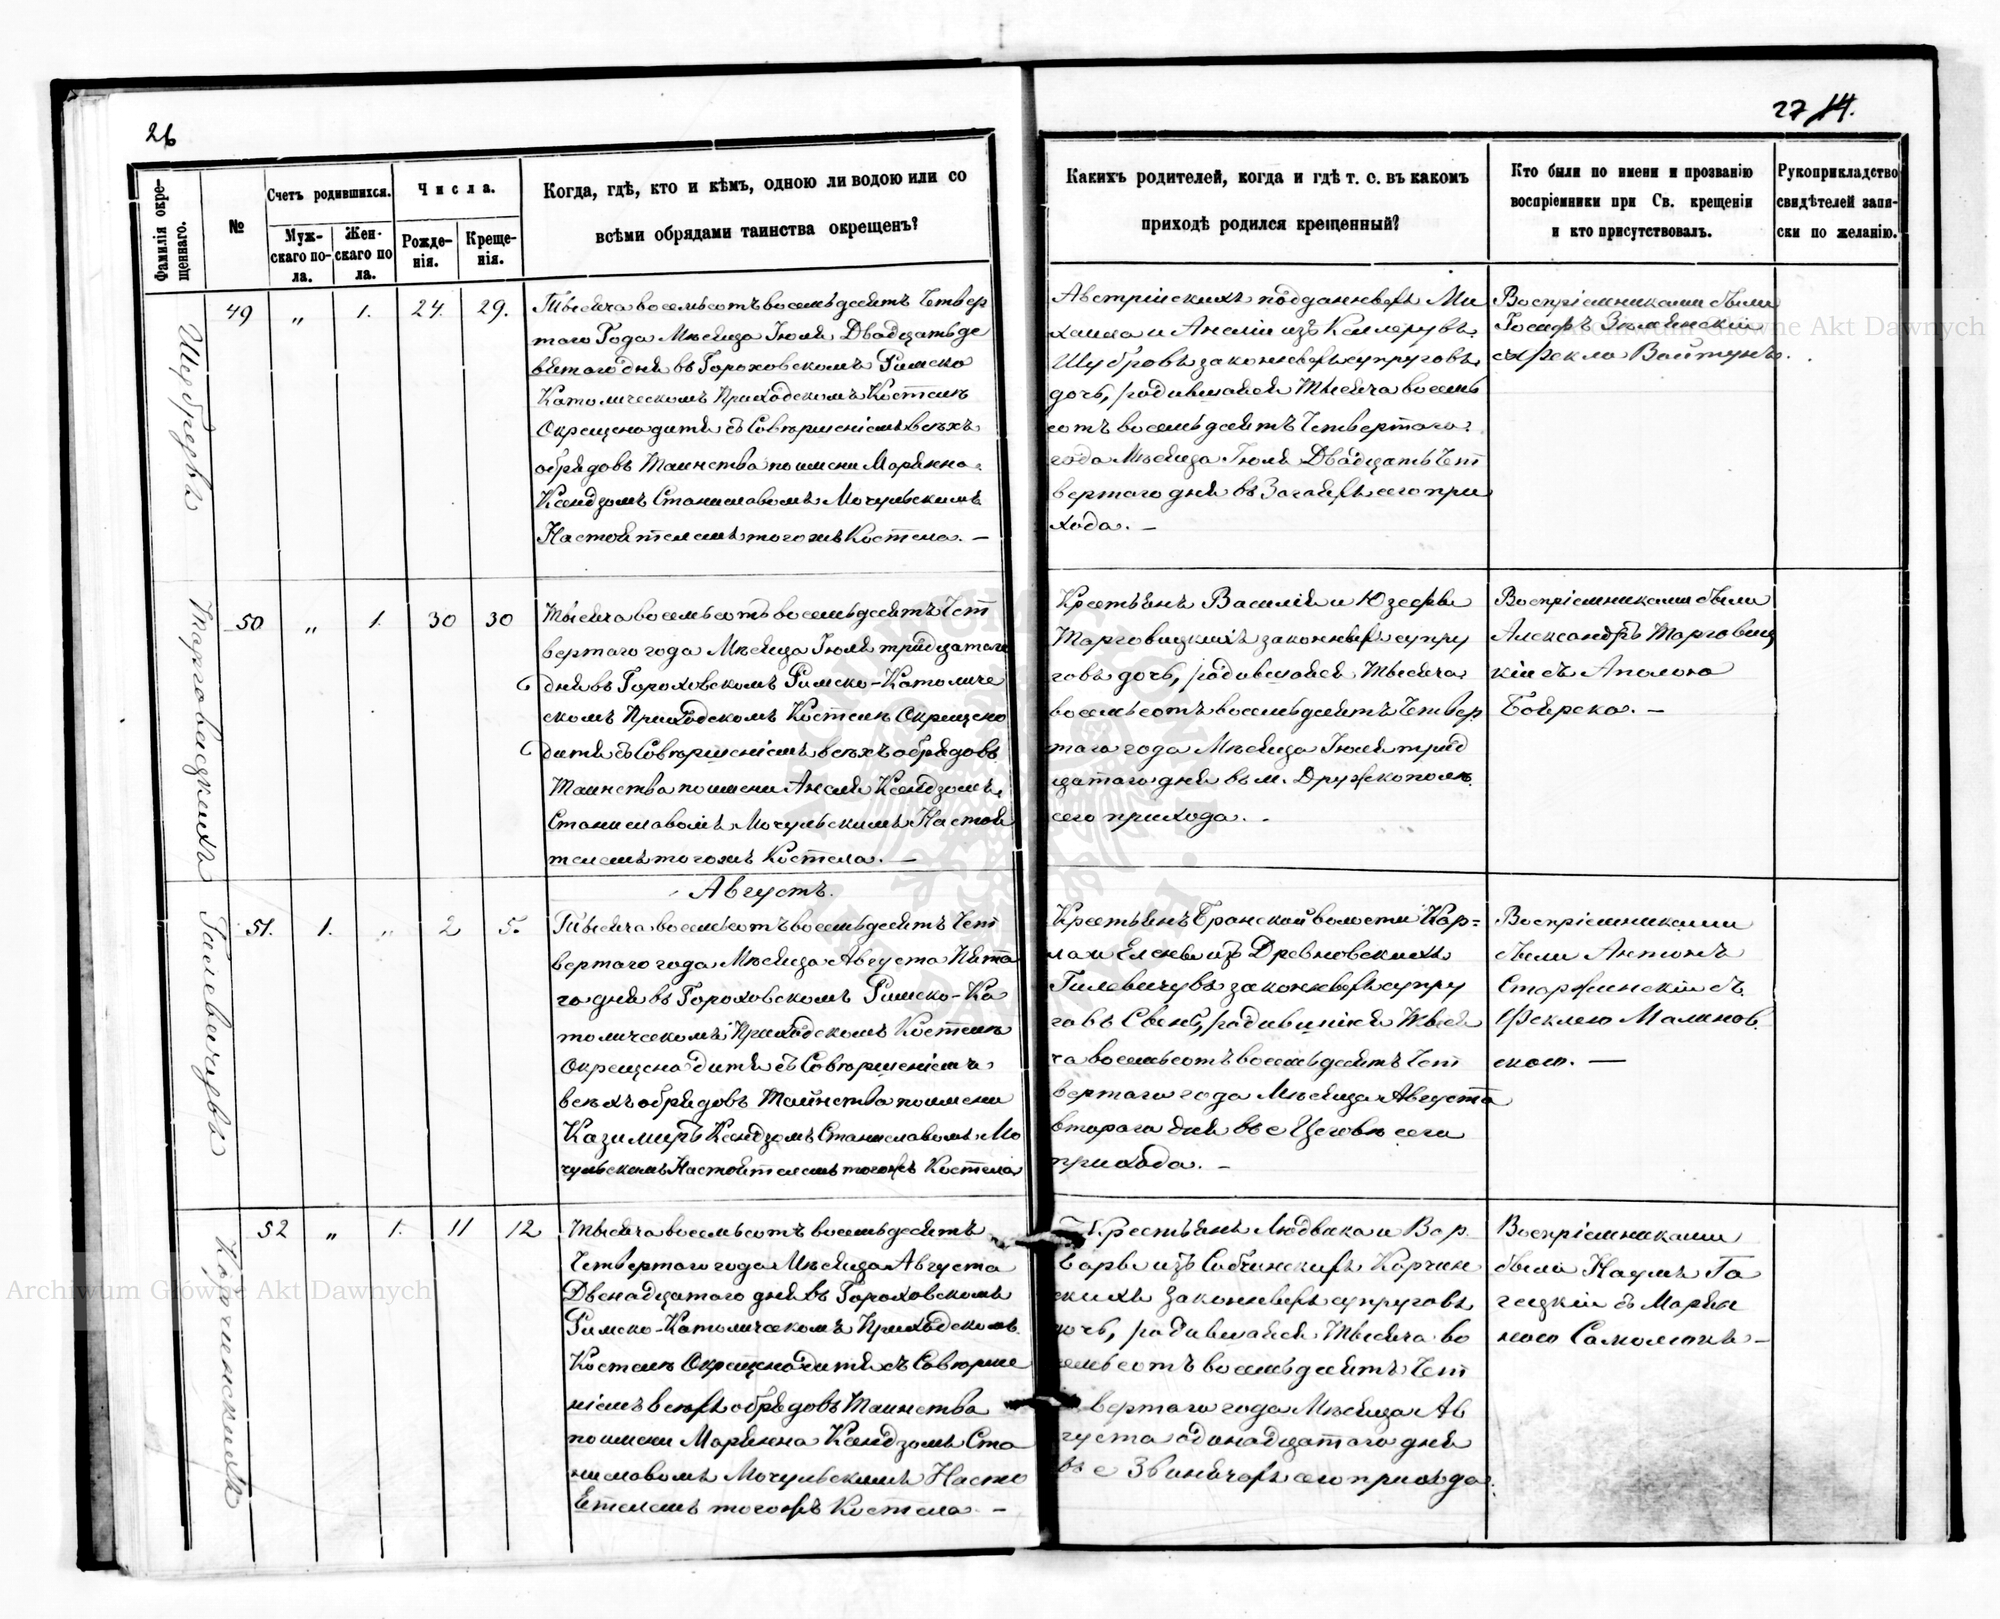 26
27 14.
Фамилія окре-
щеннаго.
№
Счетъ родившихся.
Муж-
скаго по-
ла.
Жен-
скаго по
ла.
Числа.
Рожде-
нія.
Креще-
нія.
Когда, гдѣ, кто и кѣмъ, одною ли водою или со
всѣми обрядами таинства окрещенъ?
Какихъ родителей, когда и гдѣ т. е. въ какомъ
приходѣ родился крещенный?
Кто были по имени и прозванію
воспріемники при Св. крещеніи
и кто присутствовалъ.
Рукоприкладство
свидѣтелей запи-
ски по желанію.
49 „ 1. 24. 29.
Тысяча восемьсотъ восемьдесятъ Четвер
таго Года Мѣсяца Іюля Двадцать де
вятаго дня въ Гороховскомъ Римско
Католическомъ Приходскомъ Костелѣ
Окрещено дитя съ Совершеніемъ всѣхъ
обрядовъ Таинства по имени Маріянна
Ксендзомъ Станиславомъ Мочульскимъ
Настоятелемъ того же Костела. —
Австрійскихъ подданныхъ Ми
хаила и Анеліи изъ Келлеровъ
Шубровъ законныхъ супруговъ
дочь, родившаяся Тысяча восемь
сотъ восемьдесятъ Четвертаго
года Мѣсяца Іюля Двадцать Чет
вертаго дня въ Загаяхъ сего при
хода. —
Воспріемниками были
Іосифъ
съ Фекло
Тарговицкихъ
50 „ 1. 30 30
Тысяча восемьсотъ восемьдесятъ Чет
вертаго года Мѣсяца Іюля тридцатаго
дня въ Гороховскомъ Римско-Католиче
скомъ Приходскомъ Костелѣ Окрещено
дитя съ Совершеніемъ всѣхъ обрядовъ
Таинства по имени Анеля Ксендзомъ
Станиславомъ Мочульскимъ Настоя
телемъ того же Костела. —
Крестьянъ Василія и Юзефы
Тарговицкихъ законныхъ супру
говъ дочь, родившаяся Тысяча
восемьсотъ восемьдесятъ Четвер
таго года Мѣсяца Іюля трид
цатаго дня въ м. Дружкополѣ
сего прихода. -
Воспріемниками были
Александръ Тарговиц
кій съ Аполона
Боярска. —
Августъ.
Гилевичувъ
51. 1. „ 2 5.
Тысяча восемьсотъ восемьдесятъ Чет
вертаго года Мѣсяца Августа Пята
го дня въ Гороховскомъ Римско-Ка
толическомъ Приходскомъ Костелѣ
Окрещено дитя съ Совершеніемъ
всѣхъ обрядовъ Таинства по имени
Казимиръ Ксендзомъ Станиславомъ Мо
чульскимъ Настоятелемъ тогожъ Костела
Крестьянъ Бранской волости Кар-
ла и Елены изъ Древновскихъ
Гилевичувъ законныхъ супру
говъ Сынъ, родившійся Тыся
ча восемьсотъ восемьдесятъ Чет
вертаго года Мѣсяца Августа
втораго дня въ с Цеговѣ сего
прихода. —
Воспріемниками
были Антонъ
съ
Феклею Малинов
скою. —
Корчинскихъ
52 „ 1. 11 12
Тысяча восемьсотъ восемьдесятъ
Четвертаго года Мѣсяца Августа
Двенадцатаго дня въ Гороховскомъ
Римско-Католическомъ Приходскомъ
Костелѣ Окрещено дитя съ Соверше
ніемъ всѣхъ обрядовъ Таинства
по имени Маріянна Ксендзомъ Ста
ниславомъ Мочульскимъ Насто
ятелемъ тогожъ Костела. —
Крестьянъ Людвика и Вар
вары изъ Собчинскихъ Корчин
скихъ Законныхъ супруговъ
дочь, родившаяся Тысяча во
семьсотъ восемьдесятъ Чет
вертаго года Мѣсяца Ав
густа одинадцатаго дня
въ с Звинячахъ сего прихода.
Воспріемниками
были Наумъ Га
съ Маріян
ною —
Archiwum Główne Akt Dawnych
Archiwum Główne Akt Dawnych